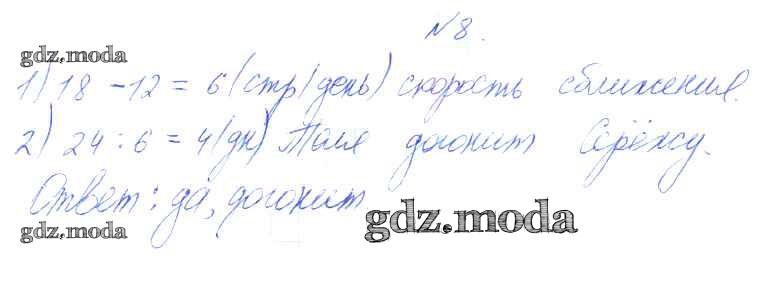 №8.
gdz.moda
1) 18 - 12 = 6 (стр/день) скорость сближения.
2) 24 : 6 = 4 (дн) Толя догонит Серёжу.
Ответ: да, догонит
gdz.moda
gdz.moda